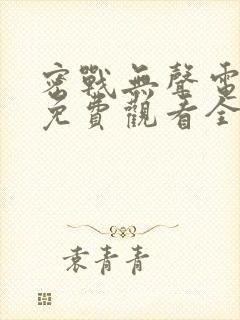 密戰無聲電
免費觀看全
袁青青